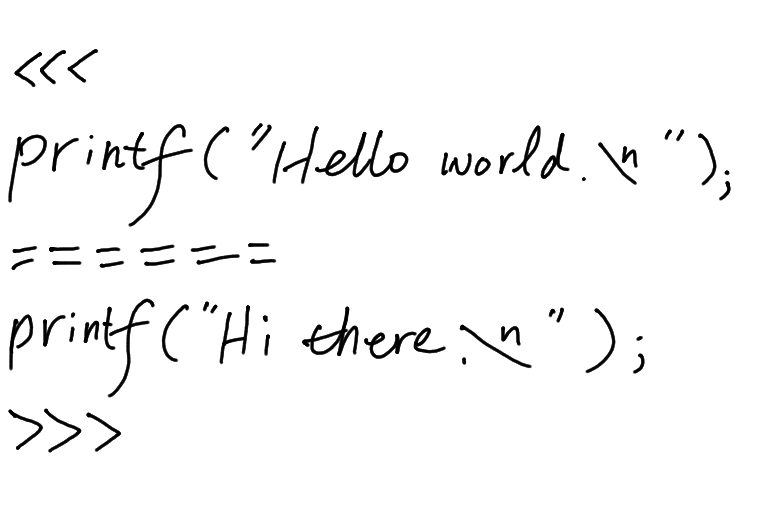 <<<
printf("Hello world.\n");
======
printf("Hi there.\n");
>>>